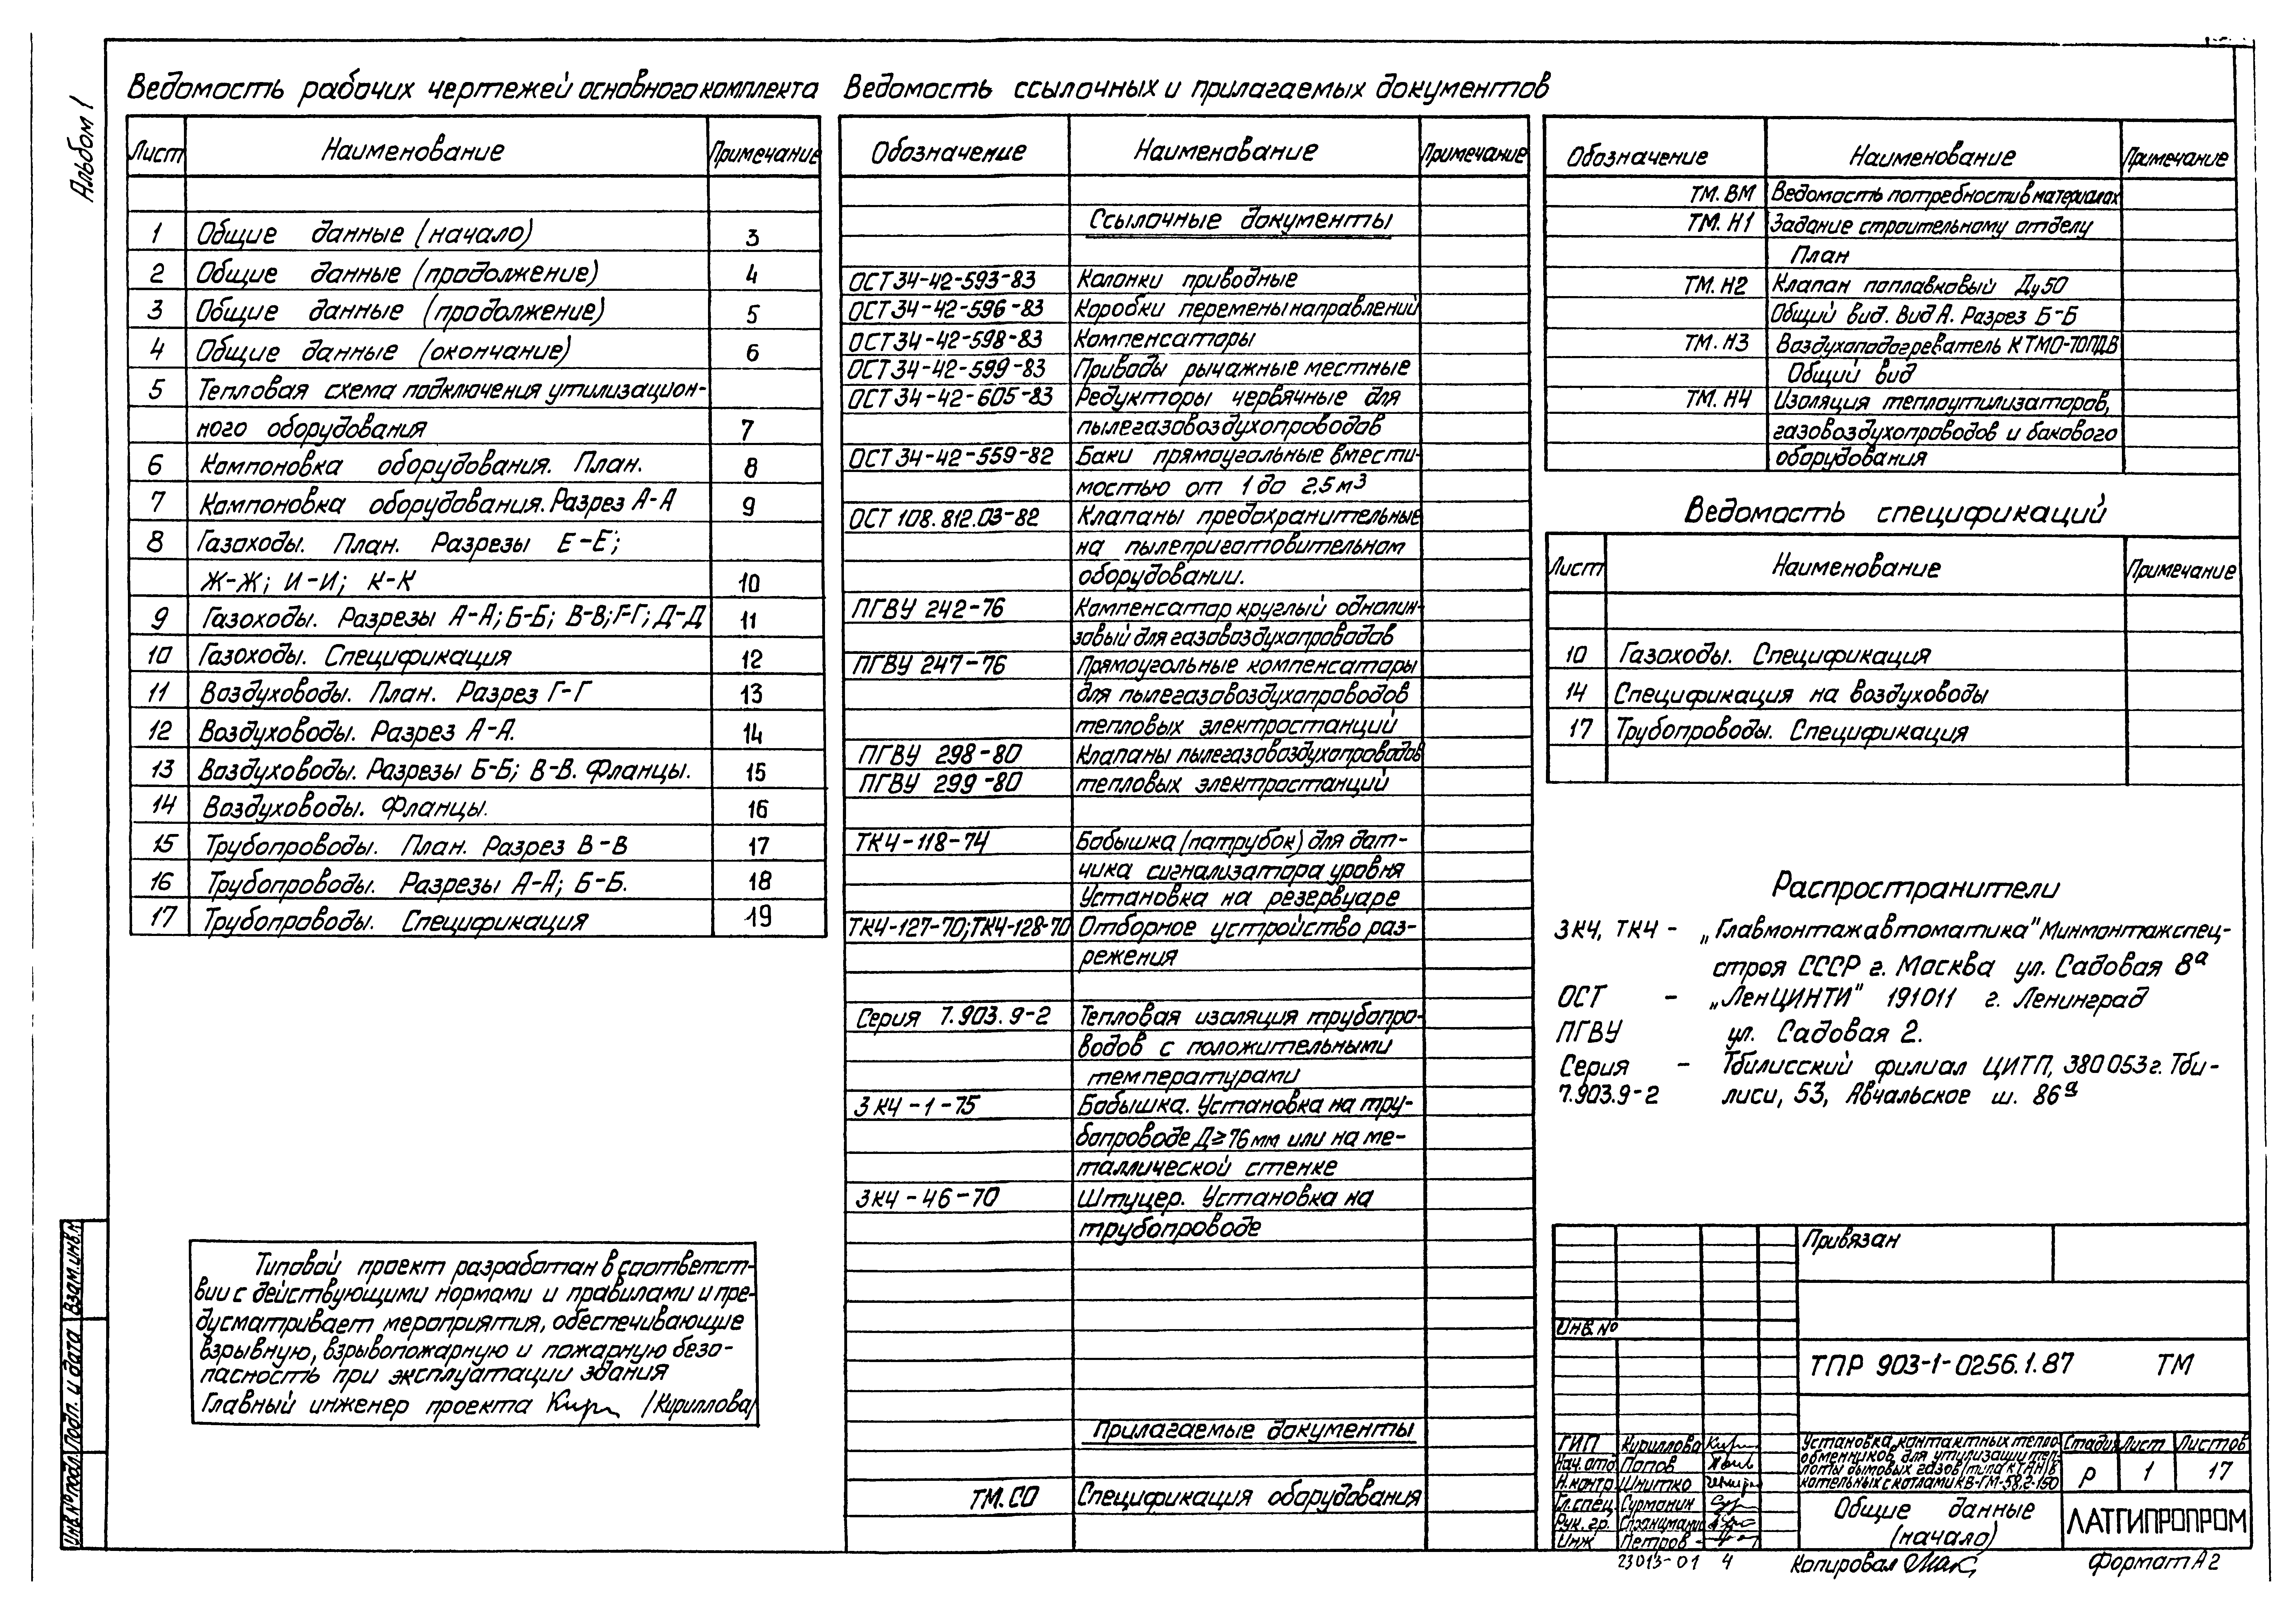 Альбом 1
Ведомость рабочих чертежей основного комплекта
Лист Наименование Примечание
1 Общие данные (начало) 3
2 Общие данные (продолжение) 4
3 Общие данные (продолжение) 5
4 Общие данные (окончание) 6
5 Тепловая схема подключения утилизацион-
ного оборудования 7
6 Компоновка оборудования. План. 8
7 Компоновка оборудования. Разрез А-А 9
8 Газоходы. План. Разрезы Е-Е;
Ж-Ж; И-И; К-К 10
9 Газоходы. Разрезы А-А; Б-Б; В-В; Г-Г; Д-Д 11
10 Газоходы. Спецификация 12
11 Воздуховоды. План. Разрез Г-Г 13
12 Воздуховоды. Разрез А-А. 14
13 Воздуховоды. Разрезы Б-Б; В-В. Фланцы. 15
14 Воздуховоды. Фланцы. 16
15 Трубопроводы. План. Разрез В-В 17
16 Трубопроводы. Разрезы А-А; Б-Б. 18
17 Трубопроводы. Спецификация 19
Типовой проект разработан в соответст-
вии с действующими нормами и правилами и пре-
дусматривает мероприятия, обеспечивающие
взрывную, взрывопожарную и пожарную безо-
пасность при эксплуатации здания
Главный инженер проекта /Кириллова/
Ведомость ссылочных и прилагаемых документов
Обозначение Наименование Примечание
Ссылочные документы
ОСТ 34-42-593-83 Колонки приводные
ОСТ 34-42-596-83 Коробки перемены направлений
ОСТ 34-42-598-83 Компенсаторы
ОСТ 34-42-599-83 Приводы рычажные местные
ОСТ 34-42-605-83 Редукторы червячные для
пылегазовоздухопроводов
ОСТ 34-42-559-82 Баки прямоугольные вмести-
мостью от 1 до 2,5 м³
ОСТ 108.812.03-82 Клапаны предохранительные
на пылеприготовительном
оборудовании.
ПГВУ 242-76 Компенсатор круглый однолин-
зовый для газовоздухопроводов
ПГВУ 247-76 Прямоугольные компенсаторы
для пылегазовоздухопроводов
тепловых электростанций
ПГВУ 298-80 Клапаны пылегазовоздухопроводов
ПГВУ 299-80 тепловых электростанций
ТК4-118-74 Бобышка (патрубок) для дат-
чика сигнализатора уровня
Установка на резервуаре
ТК4-127-70; ТК4-128-70 Отборное устройство раз-
режения
Серия 7.903.9-2 Тепловая изоляция трубопро-
водов с положительными
температурами
ЗК4-1-75 Бобышка. Установка на тру-
бопроводе Д≥76 мм или на ме-
таллической стенке
ЗК4-46-70 Штуцер. Установка на
трубопроводе
Прилагаемые документы
ТМ.СО Спецификация оборудования
Обозначение Наименование Примечание
ТМ.ВМ Ведомость потребности в материалах
ТМ.Н1 Задание строительному отделу
План
ТМ.Н2 Клапан поплавковый Ду50
Общий вид. Вид А. Разрез Б-Б
ТМ.Н3 Воздухоподогреватель КТМО-70ПДВ
Общий вид
ТМ.Н4 Изоляция теплоутилизаторов,
газовоздухопроводов и бакового
оборудования
Ведомость спецификаций
Лист Наименование Примечание
10 Газоходы. Спецификация
14 Спецификация на воздуховоды
17 Трубопроводы. Спецификация
Распространители
ЗК4, ТК4 - „Главмонтажавтоматика" Минмонтажспец-
строя СССР г. Москва ул. Садовая 8ᵃ
ОСТ - „ЛенЦИНТИ" 191011 г. Ленинград
ПГВУ ул. Садовая 2.
Серия - Тбилисский филиал ЦИТП, 380053 г. Тби-
7.903.9-2 лиси, 53, Авчальское ш. 86ᵃ
Привязан
Инв. №
ТПР 903-1-0256.1.87 ТМ
ГИП Кириллова
Нач. отд. Попов
Н.контр. Шнитко
Гл.спец. Сурманин
Рук. гр.
Инж Петров
Установка контактных тепло-
обменников для утилизации теп-
лоты дымовых газов (типа КТАН) в
котельных с котлами КВ-ГМ-58,2-150
Стадия Лист Листов
Р 1 17
Общие данные
(начало)
ЛАТГИПРОПРОМ
23013-01 4
Копировал
Формат А2
Взам. инв. №
Подп. и дата
Инв. № подл.